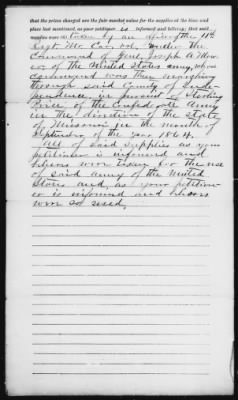 that the prices charged are the fair market value for the supplies at the time and
place last mentioned, as your petitioner is informed and believes; that said
supplies were taken by an of the 11th
Regt Mo. Cav. vol. under the
Command of Genl Joseph A Mow-
er of the United States army, whose
command was then marching
through said County of Inde-
pendence in pursuit of Sterling
Price of the Confederate Army
in the direction of the State
of Missouri in the month of
September of the year 1864.
All of said supplies as your
petitioner is informed and
believes were taken for the use
of said army of the United
States and, as your petition-
er is informed and believes
were so used.